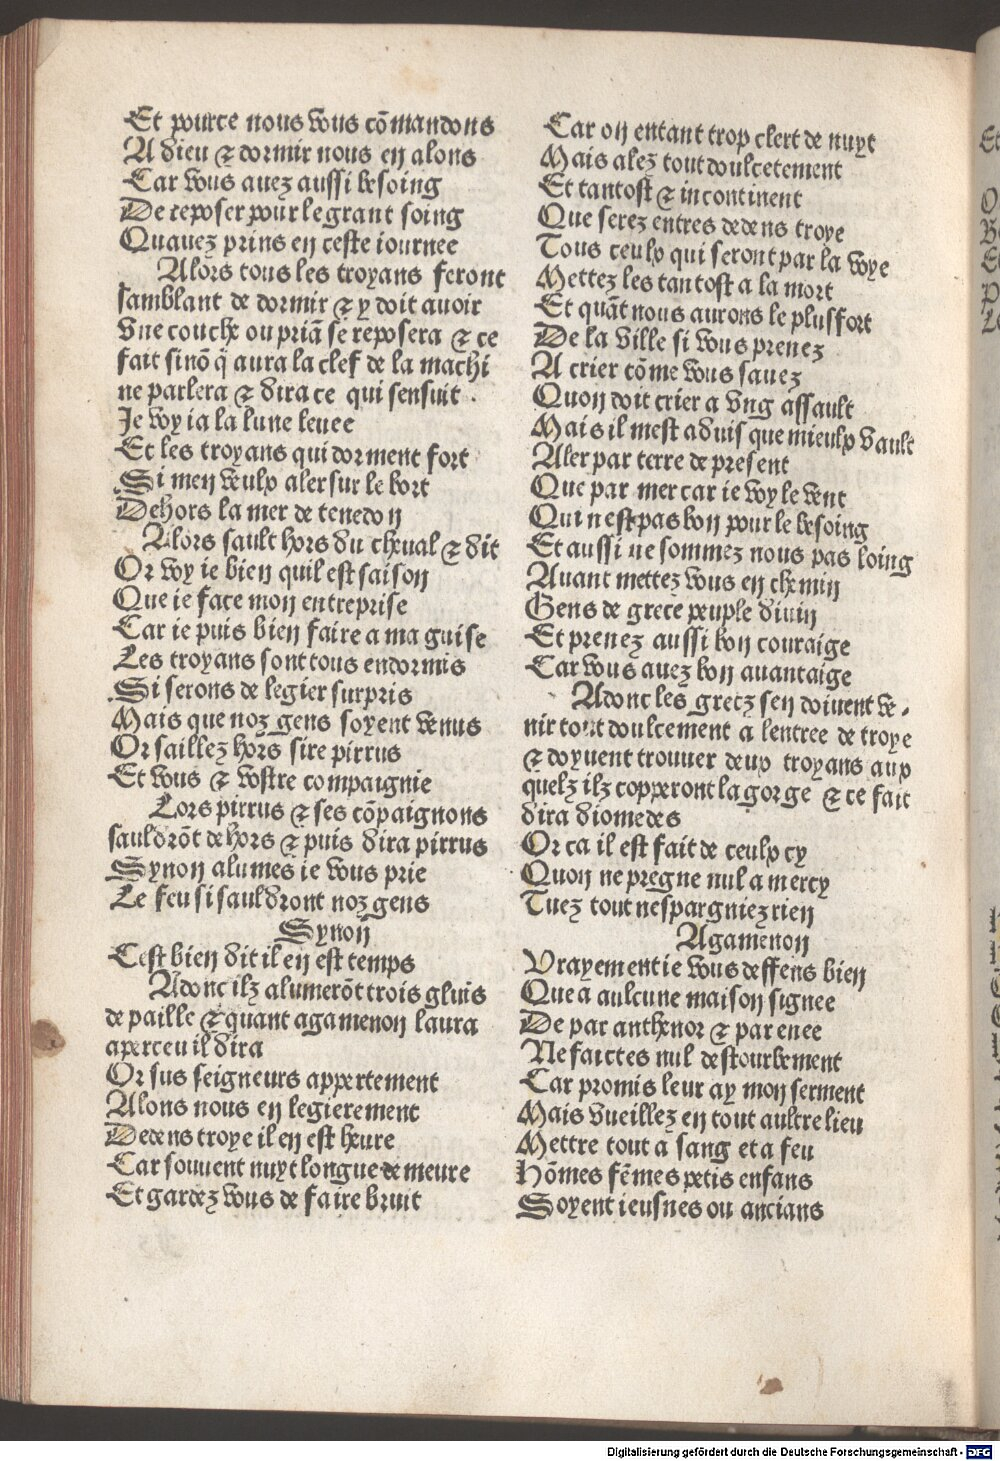 Et pource nous vous cõmandons
A dieu ⁊ dormir nous en alons
Car vous auez aussi besoing
De reposer pour le grant soing
Quauez prins en ceste iournee
Alors tous les troyans feront
samblant de dormir ⁊ y doit auoir
vne couche ou priã se reposera ⁊ ce
fait sinõ q̃ aura la clef de la machi
ne parlera ⁊ dira ce qui sensuit .
Je voy ia la lune leuee
Et les troyans qui dorment fort
Si men veulx aler sur le bort
Dehors la mer de tenedon
Alors sault hors du cheual ⁊ dit
Or voy ie bien quil est saison
Que ie face mon entreprise
Car ie puis bien faire a ma guise
Les troyans sont tous endormis
Si serons de legier surpris
Mais que noz gens soyent venus
Or saillez hors sire pirrus
Et vous ⁊ vostre compaignie
Lors pirrus ⁊ ses cõpaignons
sauldrõt dehors ⁊ puis dira pirrus
Synon alumes ie vous prie
Le feu si sauldront noz gens
Synon
Cest bien dit il en est temps
Adonc ilz alumerõt trois gluis
de paille ⁊ quant agamenon laura
aperceu il dira
Or sus seigneurs appertement
Alons nous en legierement
Dedens troye il en est heure
Car souuent nuyt longue demeure
Et gardez vous de faire bruit
Car on entant trop clert de nuyt
Mais alez tout doulcetement
Et tantost ⁊ incontinent
Que serez entres dedens troye
Tous ceulx qui seront par la voye
Mettez les tantost a la mort
Et quãt nous aurons le plus fort
De la ville si vous prenez
A crier cõme vous sauez
Quon doit crier a vng assault
Mais il mest aduis que mieulx vault
Aler par terre de present
Que par mer car ie voy le vent
Qui nest pas bon pour le besoing
Et aussi ne sommez nous pas loing
Auant mettez vous en chemin
Gens de grece peuple diuin
Et prenez aussi bon couraige
Car vous auez bon auantaige
Adonc les grecz sen doiuent ve-
nir tout doulcement a lentree de troye
⁊ doyuent trouuer deux troyans aux
quelz ilz copperont la gorge ⁊ ce fait
dira diomedes
Or ca il est fait de ceulx cy
Quon ne pregne nul a mercy
Tuez tout nespargniez rien
Agamenon
Vrayement ie vous deffens bien
Que a aulcune maison signee
De par anthenor ⁊ par enee
Ne faictes nul destourbement
Car promis leur ay mon serment
Mais vueillez en tout aultre lieu
Mettre tout a sang et a feu
Hõmes fẽmes petis enfans
Soyent ieusnes ou ancians
Digitalisierung gefördert durch die Deutsche Forschungsgemeinschaft - DFG